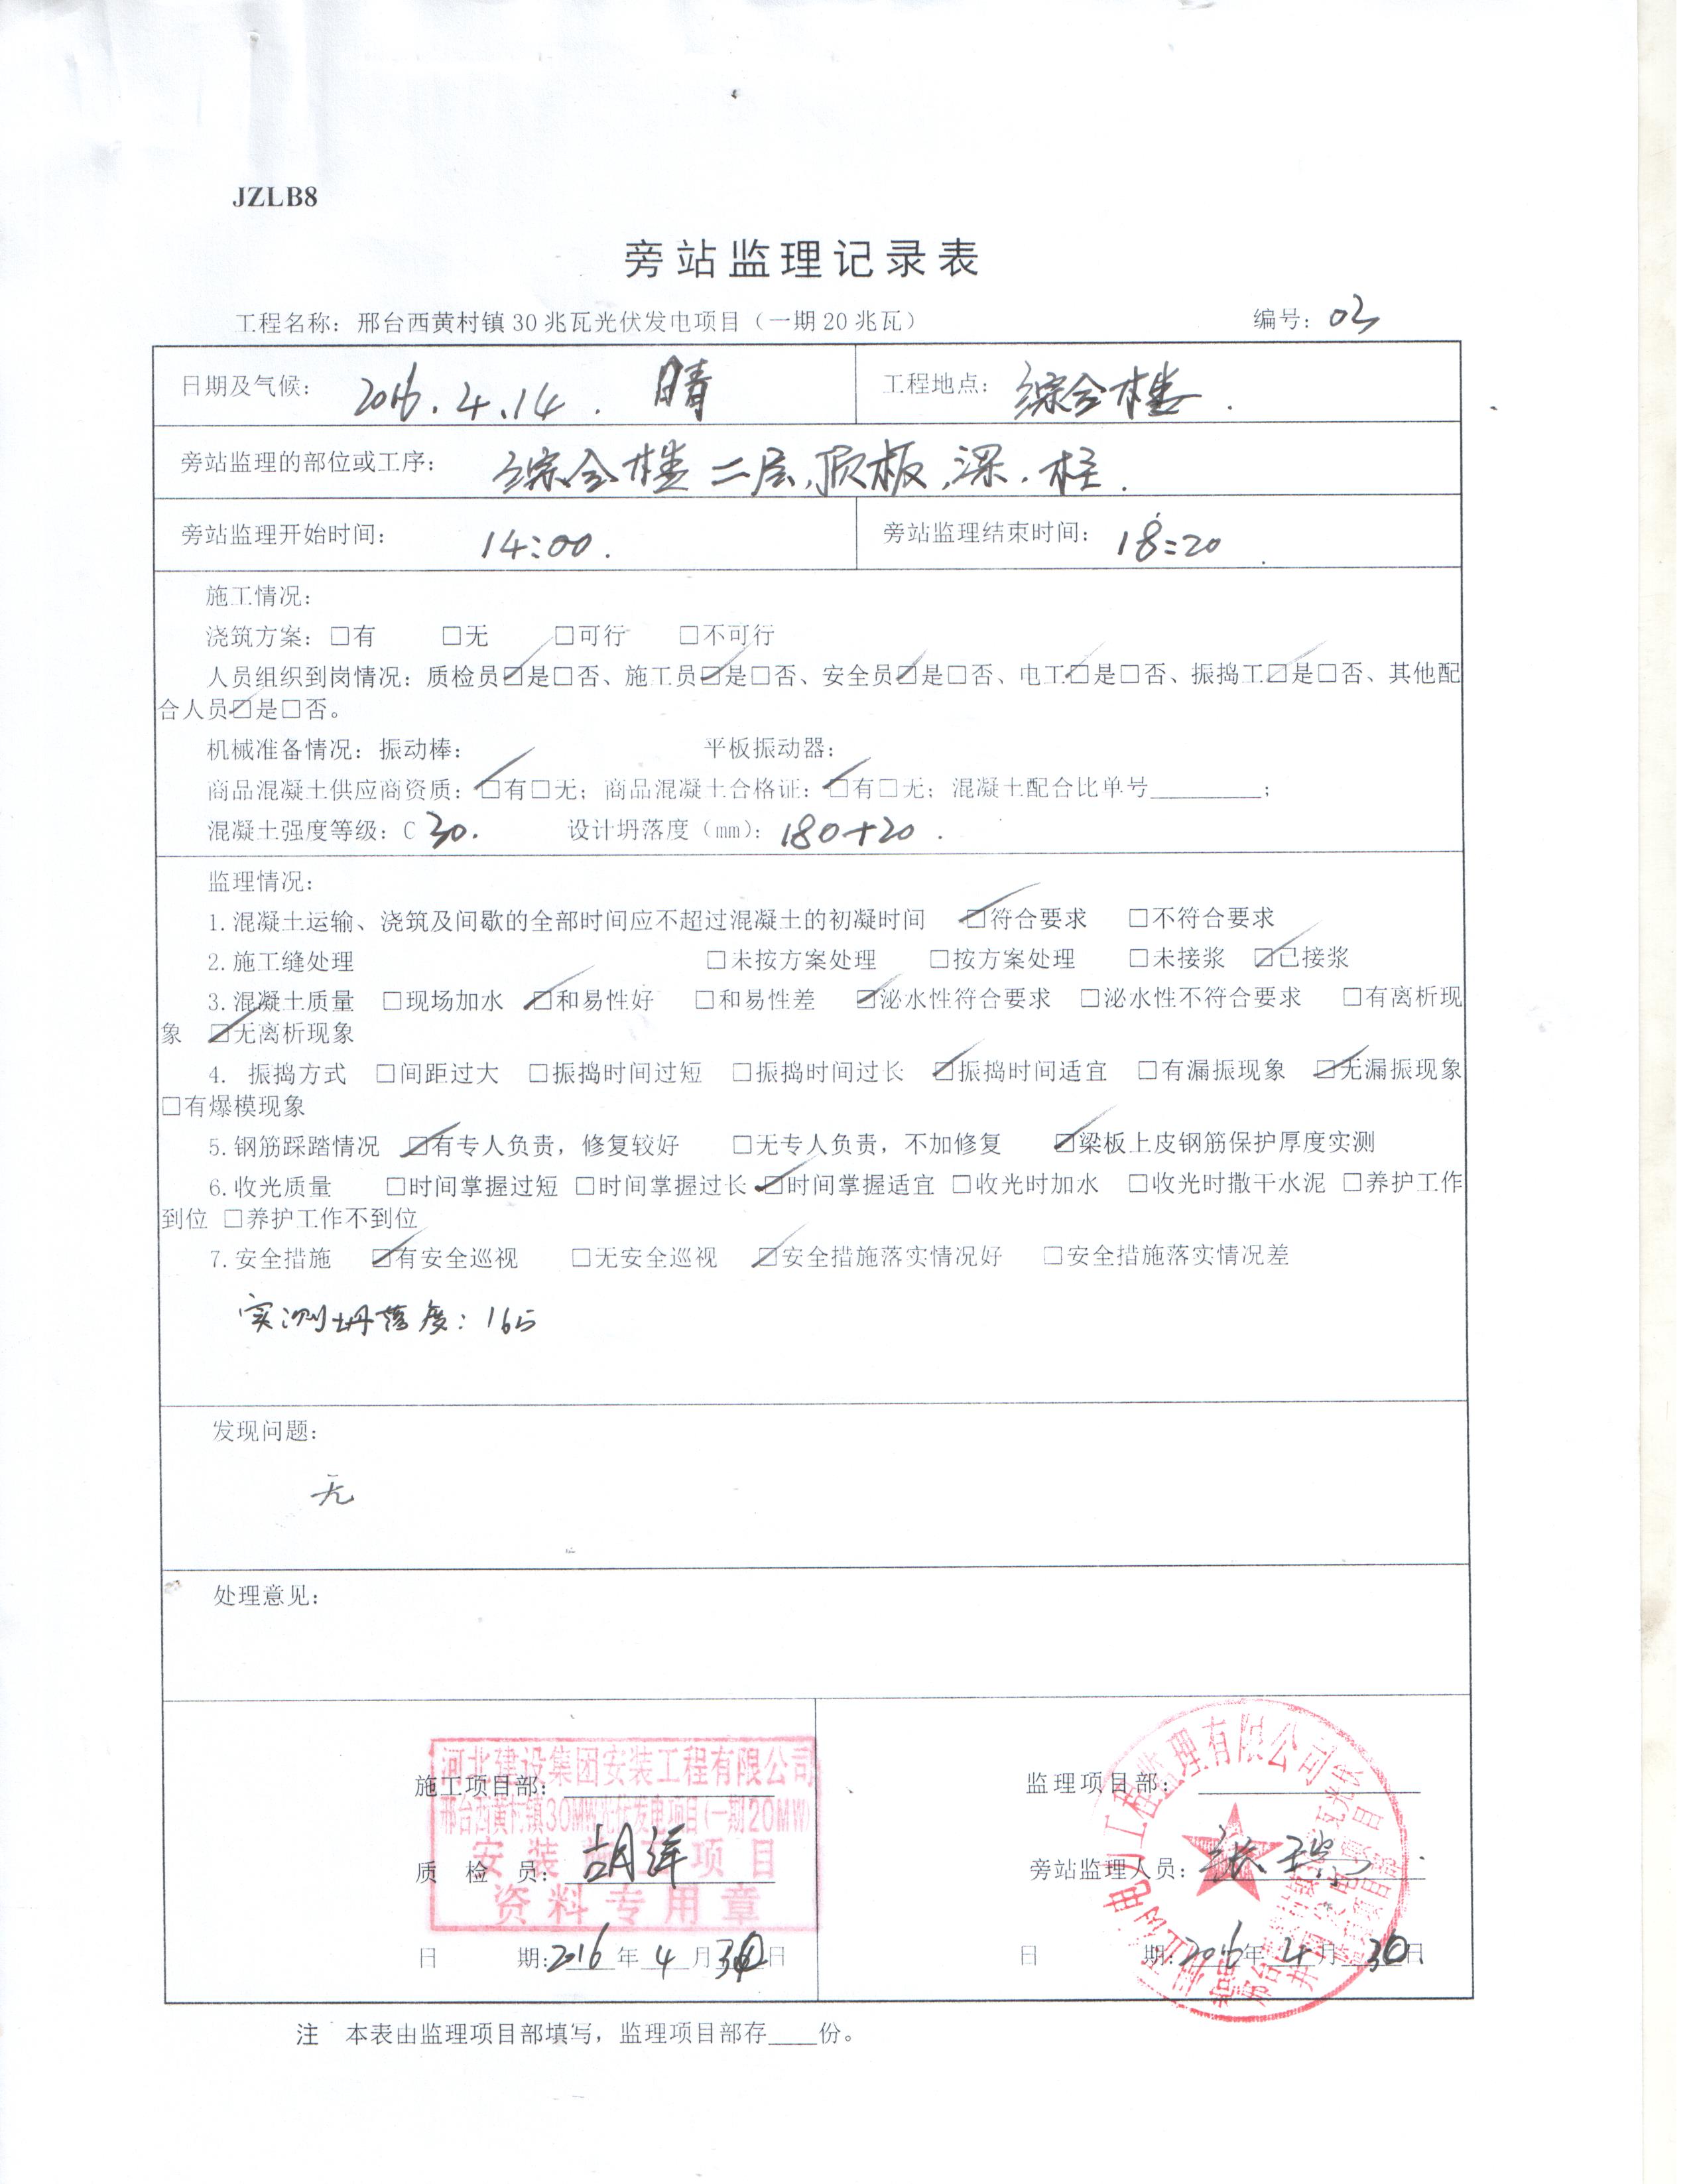 JZLB8
旁站监理记录表
工程名称：邢台西黄村镇30兆瓦光伏发电项目（一期20兆瓦） 编号：03
日期及气候： 2016.4.14. 晴 工程地点： 综合楼.
旁站监理的部位或工序： 综合楼二层,顶板,梁.柱.
旁站监理开始时间： 14:00. 旁站监理结束时间： 18:20
施工情况：
浇筑方案：□有 □无 □可行 □不可行
人员组织到岗情况：质检员☑是□否、施工员☑是□否、安全员☑是□否、电工☑是□否、振捣工☑是□否、其他配
合人员☑是□否。
机械准备情况：振动棒： 平板振动器：
商品混凝土供应商资质：☑有□无；商品混凝土合格证：☑有□无；混凝土配合比单号________；
混凝土强度等级：C 30. 设计坍落度（mm）：180+20.
监理情况：
1.混凝土运输、浇筑及间歇的全部时间应不超过混凝土的初凝时间 ☑符合要求 □不符合要求
2.施工缝处理 □未按方案处理 □按方案处理 □未接浆 ☑已接浆
3.混凝土质量 □现场加水 ☑和易性好 □和易性差 ☑泌水性符合要求 □泌水性不符合要求 □有离析现
象 ☑无离析现象
4. 振捣方式 □间距过大 □振捣时间过短 □振捣时间过长 ☑振捣时间适宜 □有漏振现象 ☑无漏振现象
□有爆模现象
5.钢筋踩踏情况 ☑有专人负责，修复较好 □无专人负责，不加修复 ☑梁板上皮钢筋保护厚度实测
6.收光质量 □时间掌握过短 □时间掌握过长 ☑时间掌握适宜 □收光时加水 □收光时撒干水泥 □养护工作
到位 □养护工作不到位
7.安全措施 ☑有安全巡视 □无安全巡视 ☑安全措施落实情况好 □安全措施落实情况差
实测坍落度：165
发现问题：
无
处理意见：
河北建设集团安装工程有限公司
邢台西黄村镇30MW光伏发电项目(一期20MW)
安装施工项目
资料专用章
施工项目部： 监理项目部：
质 检 员：胡洋 旁站监理人员：张
电力工程监理有限公司
日 期：2016年4月30日 日 期：2016年4月30日
注 本表由监理项目部填写，监理项目部存____份。